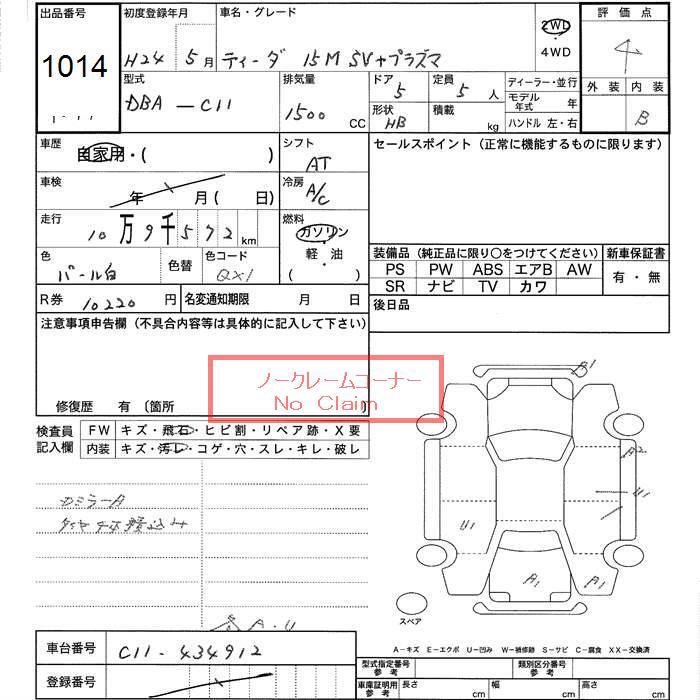 出品番号
1014
初度登録年月
H24 5月
車名・グレード
ティーダ 15M SV+プラズマ
2WD
4WD
評価点
4
外装 内装
B
型式
DBA-C11
排気量
1500 CC
ドア
5
定員
5人
形状
HB
積載
kg
ディーラー・並行
モデル年式 年
ハンドル 左・右
車歴
自家用・( )
シフト
AT
セールスポイント (正常に機能するものに限ります)
車検
年 月(日)
冷房
A/C
走行
10万9千572km
燃料
ガソリン
軽・油
( )
色
パール白
色替
色コード
QX1
装備品 (純正品に限り○をつけてください)
新車保証書
PS PW ABS エアB AW
有・無
SR ナビ TV カワ
R券 10220円
名変通知期限 月 日
後日品
注意事項申告欄 (不具合内容等は具体的に記入して下さい)
ノークレームコーナー
No Claim
修復歴 有 〔箇所 〕
検査員記入欄
FW キズ・飛石・ヒビ割・リペア跡・X要
内装 キズ・汚レ・コゲ・穴・スレ・キレ・破レ
A1
A2
U1
U1
A1
A1
スペア
A・U
A-キズ E-エクボ U-凹み W-補修跡 S-サビ C-腐食 XX-交換済
車台番号 C11-434912
登録番号
型式指定番号参考
類別区分番号参考
車庫証明用参考 長さ cm 幅 cm 高さ cm